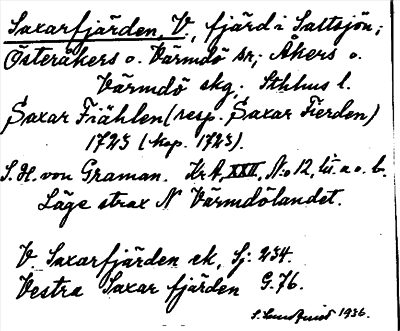 Saxarfjärden, V, fjärd i Saltsjön;
Österåkers o. Värmdö sr; Åkers o.
Värmdö skg; Sthlms l.
Saxar Fiählen (resp. Saxar Fierden)
1723 (kop. 1723).
S. H. von Graman. KrA, XXII, No 12, lit. a o. b.
Läge strax N Värmdölandet.
V Saxarfjärden ek, Sj: 234.
Vestra Saxar fjärden G. 76.
S. Lundqvist 1936.